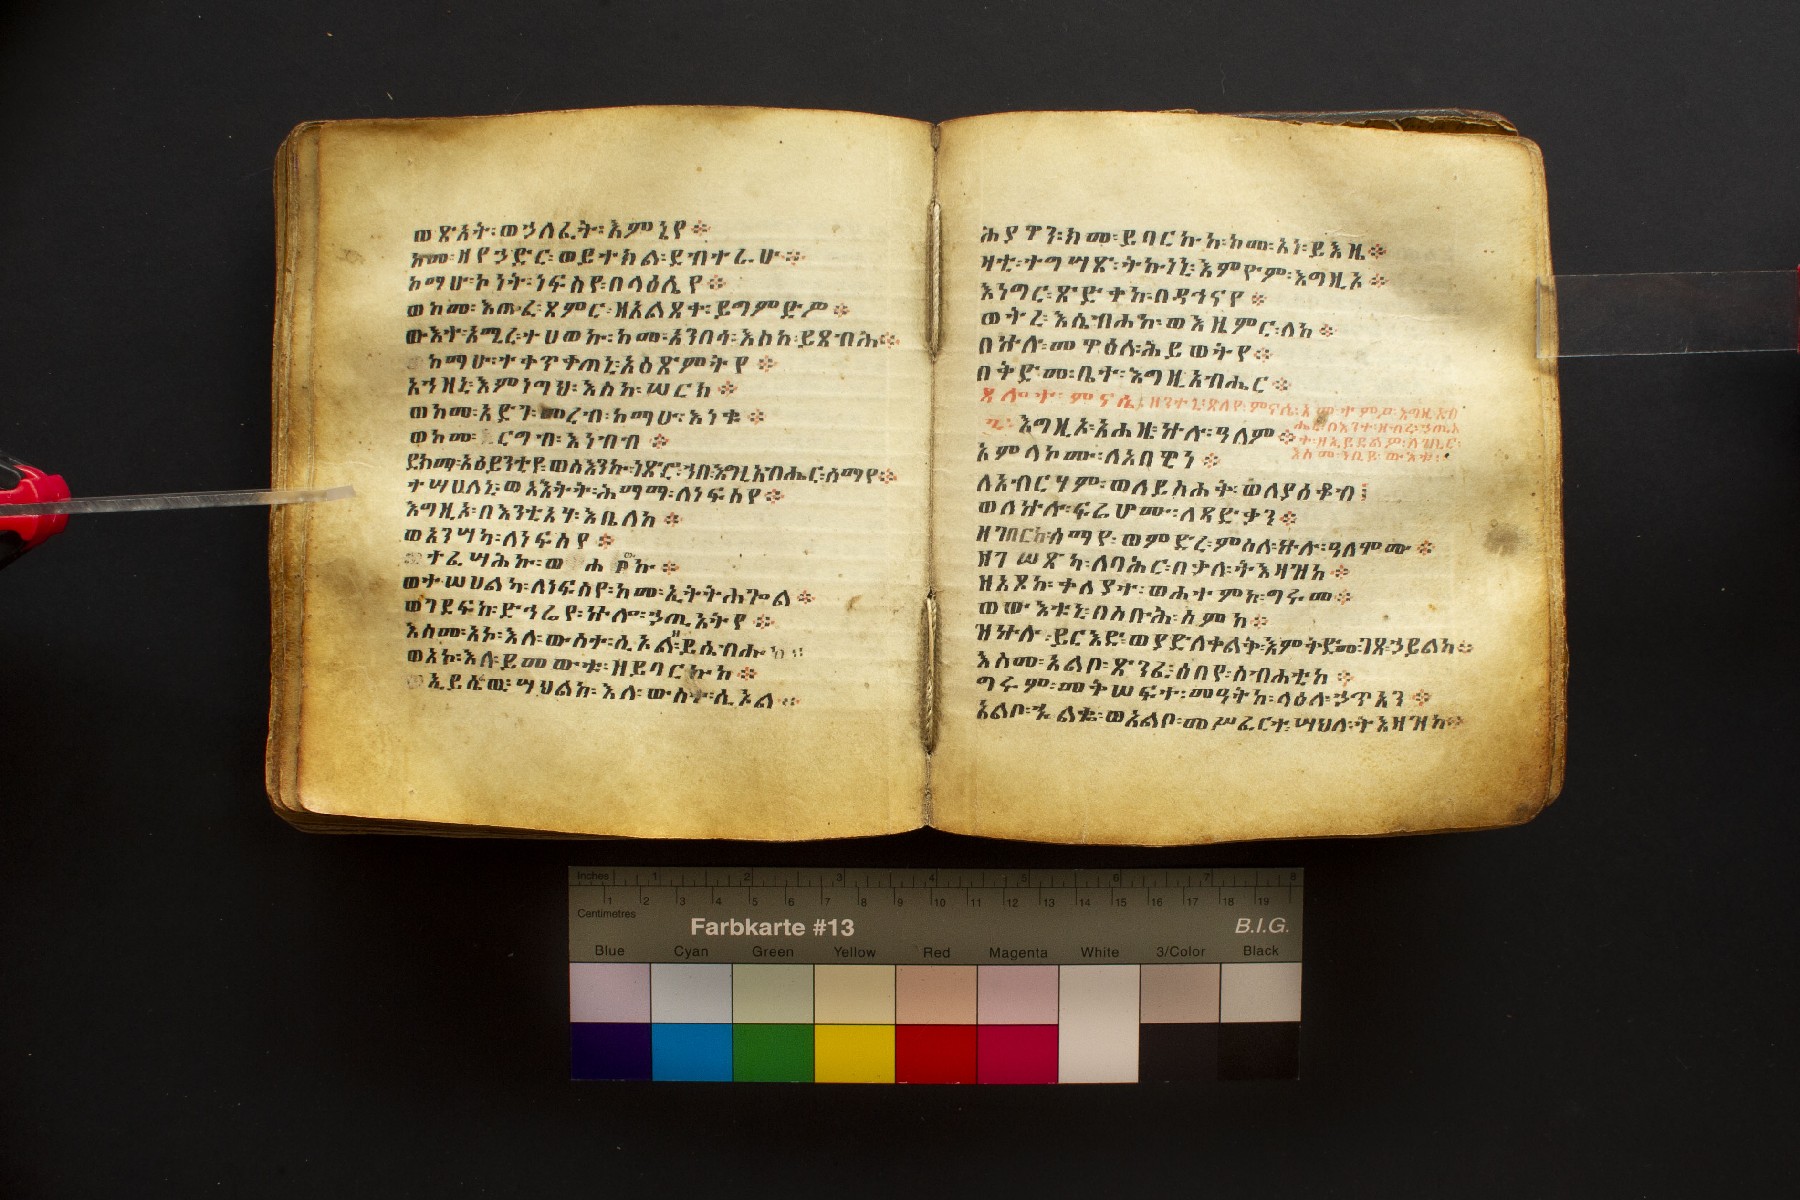 ወጽአት፡ወኃለፈት፡እምኒየ፨
ከመ፡ዘየኃድር፡ወይተክል፡ደብተራሁ፨
ከማሁ፡ኮነት፡ነፍስየ፡በላዕሌየ፨
ወከመ፡እጡረ፡ጸምር፡ዘአልጸቀ፡ይግምድዎ፨
ውእተ፡አሚረ፡ተሀወኩ፡ከመ፡አንበሳ፡እስከ፡ይጸብሕ፨
ከማሁ፡ተቀጥቀጠኒ፡አዕጽምትየ፨
እኀዝኒ፡እምነግህ፡እስከ፡ሠርክ፨
ወከመ፡አድገ፡መረብ፡ከማሁ፡እነቁ፨
ወከመ፡ርግብ፡እነብብ፨
ደክማ፡አዕይንቲየ፡ወስእንኩ፡ነጽሮ፡ኀበ፡እግዚአብሔር፡ሰማየ፨
ተሣሀለኒ፡ወአእትት፡ሕማማ፡ለነፍስየ፨
እግዚኦ፡በእንቲአሃ፡እቤለከ፨
ወአንሣካ፡ለነፍስየ፨
ተፈሣሕኩ፡ወሐዮኩ፨
ወተሠሀልካ፡ለነፍስየ፡ከመ፡ኢትትሐጐል፨
ወገደፍከ፡ድኅሬየ፡ኵሎ፡ኃጢአትየ፨
እስመ፡አኮ፡እለ፡ውስተ፡ሲኦል፡ይሴብሑከ፨
ወአኮ፡እለ፡ይመውቱ፡ዘይባርኩከ፨
ወኢይሴፈዉ፡ሣህልከ፡እለ፡ውስተ፡ሲኦል፨
ሕያዋን፡ክመ፡ይባርኩከ፡ከመ፡አነ፡ይእዜ፨
ዛቲ፡ተግሣጽ፡ትኩነኒ፡እምዮም፡እግዚኦ፨
እነግር፡ጽድቀከ፡በዳኅናየ፨
ወትረ፡እሴብሐከ፡ወእዜምር፡ለከ፨
በኵሉ፡መዋዕለ፡ሕይወትየ፨
በቅድመ፡ቤተ፡እግዚአብሔር፨
ጸሎተ፡ምናሴ፤
እግዚኦ፡አሐዜ፡ኵሉ፡ዓለም፨
አምላኮሙ፡ለአበዊነ፨
ለአብርሃም፡ወለይስሐቅ፡ወለያዕቆብ፤
ወለኵሉ፡ፍሬሆሙ፡ለጻድቃን፨
ዘገበርከ፡ሰማየ፡ወምድረ፡ምስለ፡ኵሉ፡ዓለሞሙ፨
ዘገሠጽካ፡ለባሕር፡በቃለ፡ትእዛዝከ፨
ዘአጾከ፡ቀላያተ፡ወሐተምከ፡ግሩመ፨
ወውእቱኒ፡በስቡሕ፡ስምከ፨
ዝኵሉ፡ይርእድ፡ወያድለቀልቅ፡እምቅድመ፡ገጸ፡ኃይልከ፨
እስመ፡አልቦ፡ጽንፈ፡ዕበየ፡ስብሐቲከ፨
ግሩም፡መቅሠፍተ፡መዓትከ፡ላዕለ፡ኃጥአን፨
አልቦ፡ኁልቈ፡ወአልቦ፡መሥፈርተ፡ሣህለ፡ትእዛዝከ፨
Inches 1 2 3 4 5 6 7 8
1 2 3 4 5 6 7 8 9 10 11 12 13 14 15 16 17 18 19
Centimetres
Farbkarte #13 B.I.G.
Blue Cyan Green Yellow Red Magenta White 3/Color Black